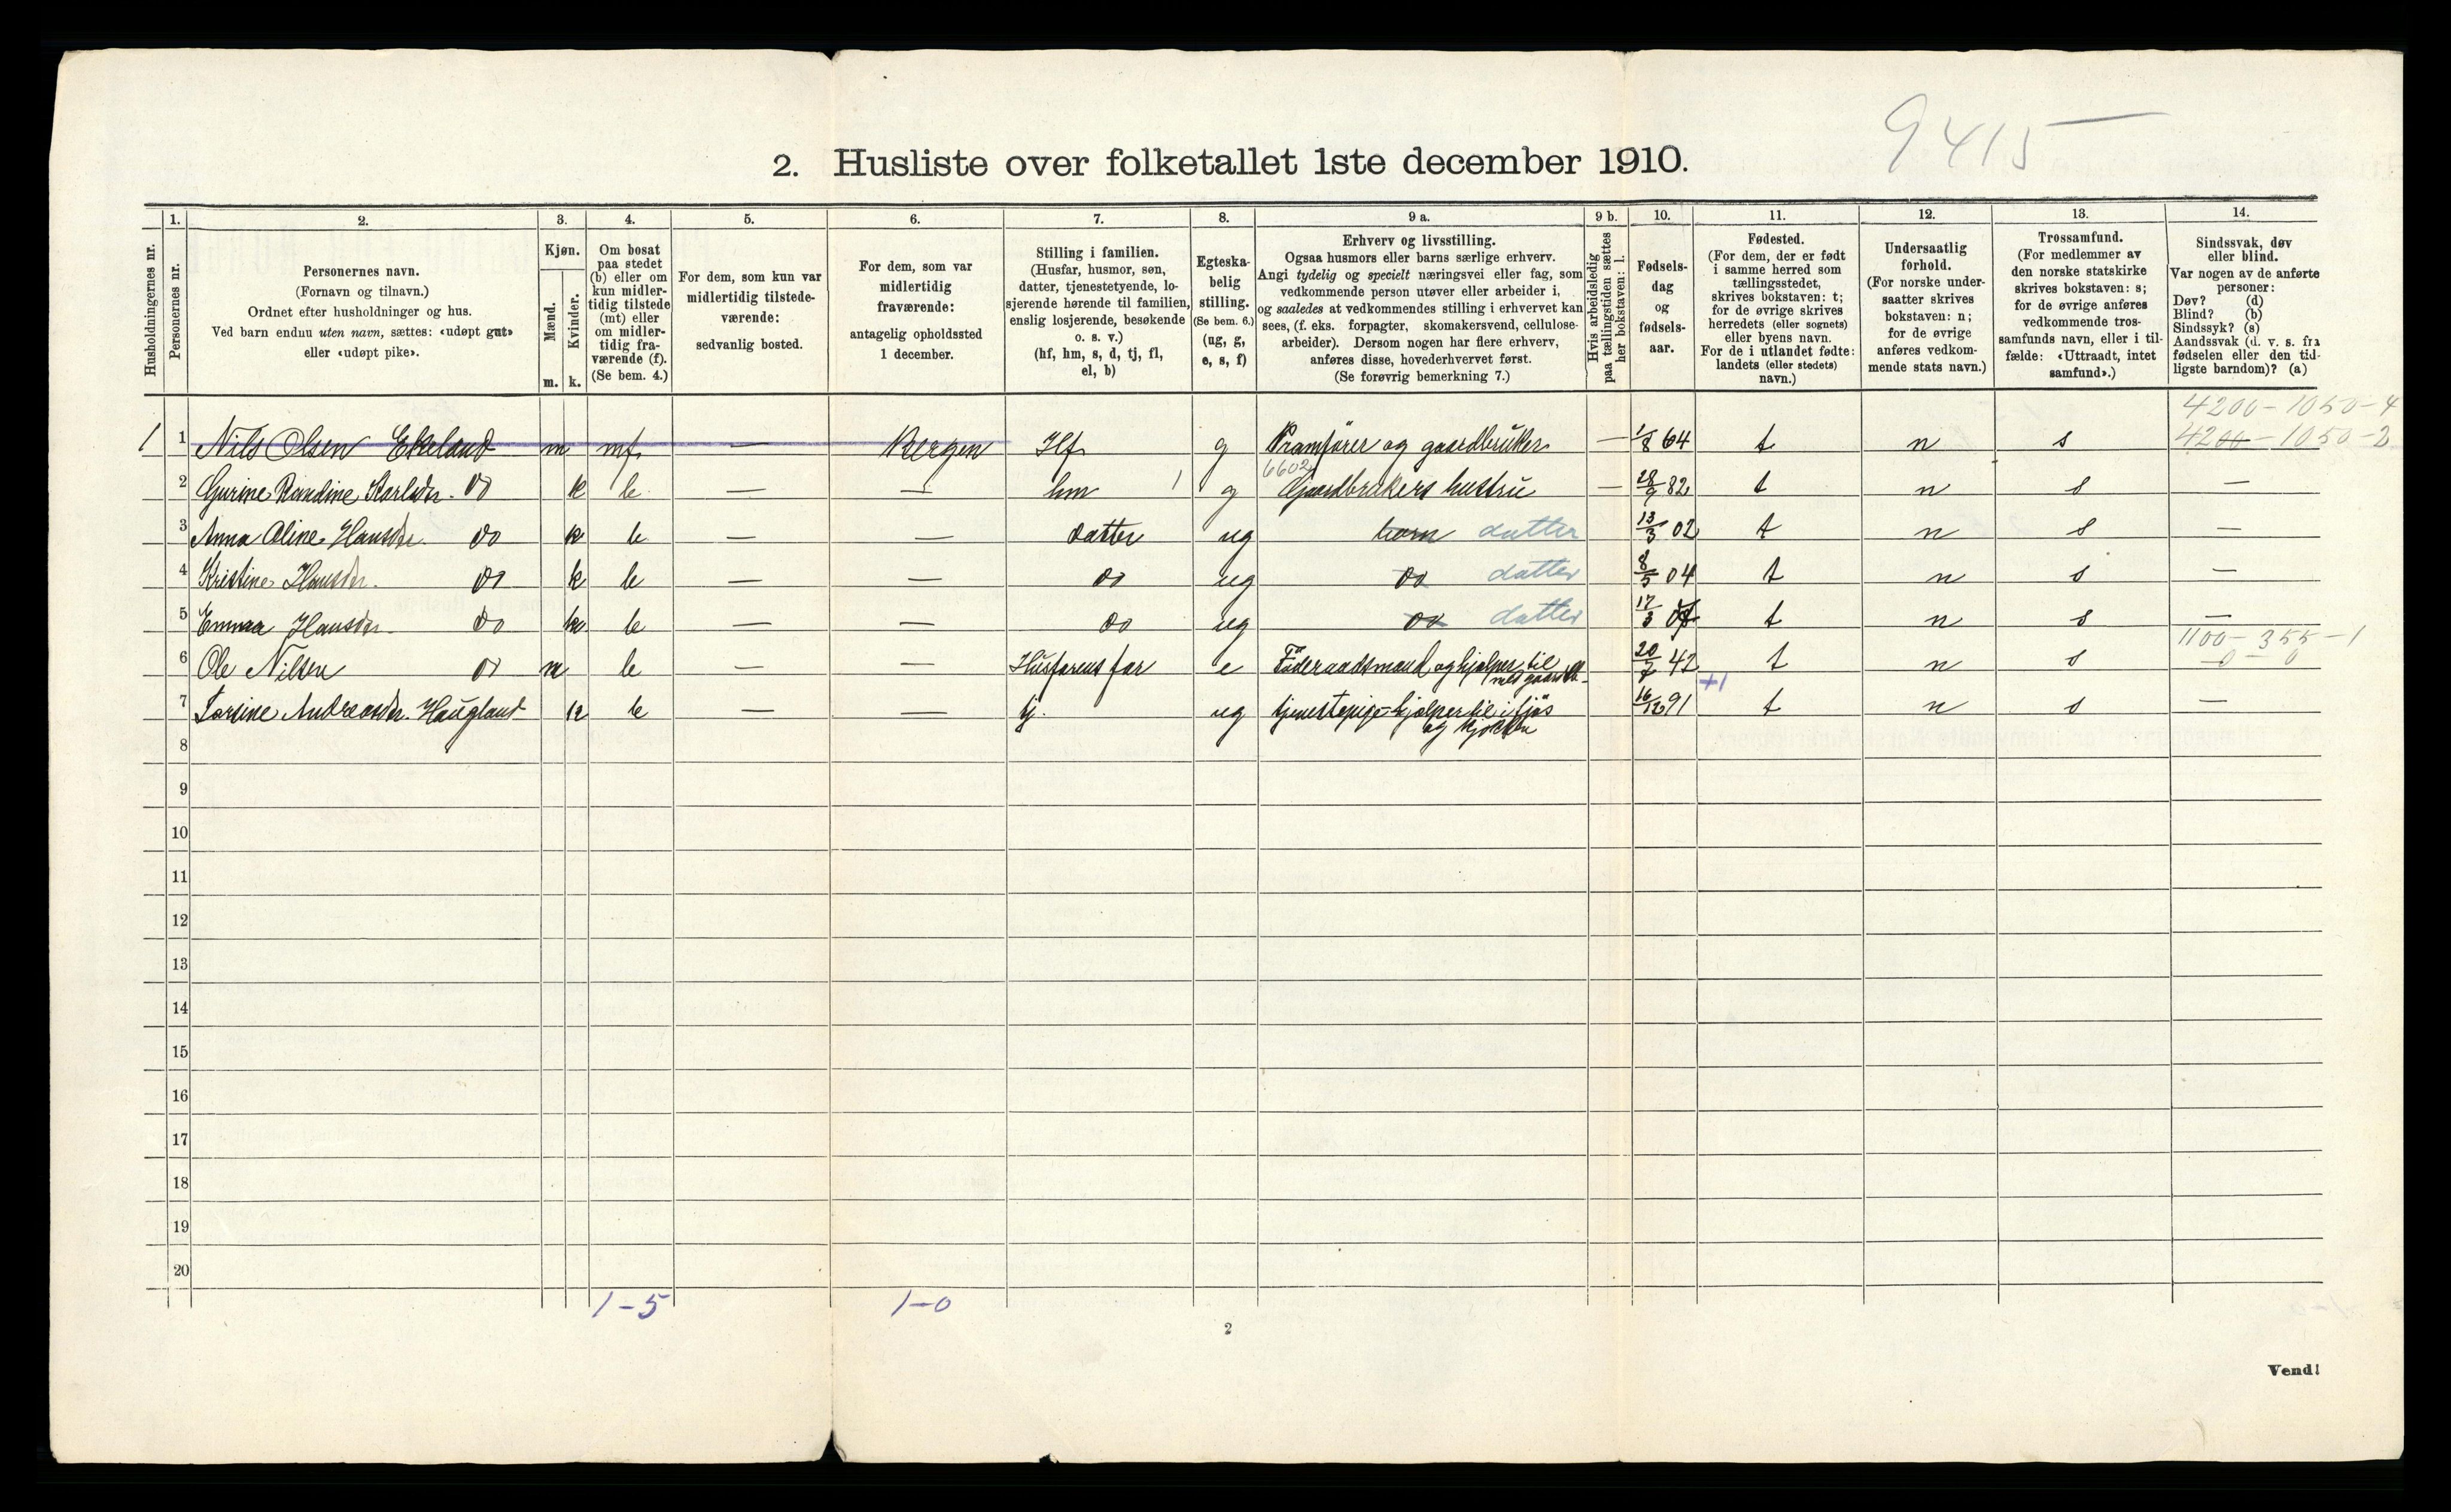 9415
2. Husliste over folketallet 1ste december 1910.
1. 2. 3. 4. 5. 6. 7. 8. 9 a. 9 b. 10. 11. 12. 13. 14.
Husholdningernes nr.
Personernes nr.
Personernes navn.
(Fornavn og tilnavn.)
Ordnet efter husholdninger og hus.
Ved barn endnu uten navn, sættes: «udøpt gut»
eller «udøpt pike».
Kjøn.
Mænd.
Kvinder.
m. k.
Om bosat
paa stedet
(b) eller om
kun midler-
tidig tilstede
(mt) eller
om midler-
tidig fra-
værende (f).
(Se bem. 4.)
For dem, som kun var
midlertidig tilstede-
værende:
sedvanlig bosted.
For dem, som var
midlertidig
fraværende:
antagelig opholdssted
1 december.
Stilling i familien.
(Husfar, husmor, søn,
datter, tjenestetyende, lo-
sjerende hørende til familien,
enslig losjerende, besøkende
o. s. v.)
(hf, hm, s, d, tj, fl,
el, b)
Egteska-
belig
stilling.
(Se bem. 6.)
(ug, g,
e, s, f)
Erhverv og livsstilling.
Ogsaa husmors eller barns særlige erhverv.
Angi tydelig og specielt næringsvei eller fag, som
vedkommende person utøver eller arbeider i,
og saaledes at vedkommendes stilling i erhvervet kan
sees, (f. eks. forpagter, skomakersvend, cellulose-
arbeider). Dersom nogen har flere erhverv,
anføres disse, hovederhvervet først.
(Se forøvrig bemerkning 7.)
Hvis arbeidsledig
paa tællingstiden sættes
her bokstaven: l.
Fødsels-
dag
og
fødsels-
aar.
Fødested.
(For dem, der er født
i samme herred som
tællingsstedet,
skrives bokstaven: t;
for de øvrige skrives
herredets (eller sognets)
eller byens navn.
For de i utlandet fødte:
landets (eller stedets)
navn.)
Undersaatlig
forhold.
(For norske under-
saatter skrives
bokstaven: n;
for de øvrige
anføres vedkom-
mende stats navn.)
Trossamfund.
(For medlemmer av
den norske statskirke
skrives bokstaven: s;
for de øvrige anføres
vedkommende tros-
samfunds navn, eller i til-
fælde: «Uttraadt, intet
samfund».)
Sindssvak, døv
eller blind.
Var nogen av de anførte
personer:
Døv? (d)
Blind? (b)
Sindssyk? (s)
Aandssvak (d. v. s. fra
fødselen eller den tid-
ligste barndom)? (a)
4200-1050-4
1 1 Nils Olsen Ekeland m mf. — Bergen Hf g Pramfører og gaardbruker — 1/8 64 t n s 4200-1050-2
6602
2 Gurine Randine Karlsdr. do k b — — hm 1 g Gaardbrukers hustru — 28/9 82 t n s —
3 Anna Oline Hansdr. do k b — — datter ug barn datter 13/3 02 t n s —
4 Kristine Hansdr. do k b — — do ug do datter 8/5 04 t n s —
5 Emma Hansdr. do k b — — do ug do datter 17/3 t n s —
1100-355-1
6 Ole Nilsen do m b — — Husfarens far e Föderaadsmand og hjælper til 20/7 42 t n s 0 — 0
+1
7 Torsine Andreasdr. Haugland k b — — tj. ug tjenestepige-hjælper til i fjös 16/12 91 t n s —
og kjökken
8
9
10
11
12
13
14
15
16
17
18
19
20
1-5 1-0
2
Vend!